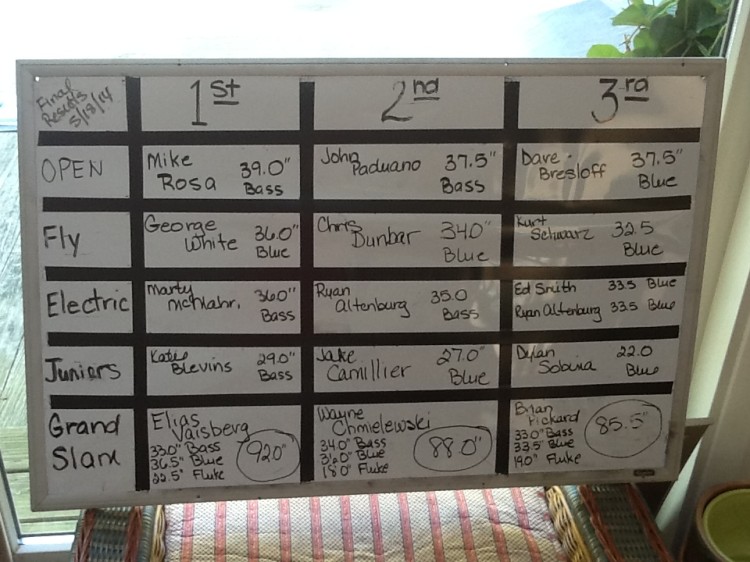 Final Results 5/18/14
1st
2nd
3rd
OPEN
Mike Rosa 39.0" Bass
John Paduano 37.5" Bass
Dave Bresloff 37.5" Blue
Fly
George White 36.0" Blue
Chris Dunbar 34.0" Blue
Kurt Schwarz 32.5 Blue
Electric
Marty McMahr. 36.0" Bass
Ryan Altenburg 35.0 Bass
Ed Smith 33.5 Blue
Ryan Altenburg 33.5 Blue
Juniors
Katie Blevins 29.0" Bass
Jake Camillier 27.0" Blue
Dylan 22.0 Blue
Grand Slam
Elias Vaisberg
33.0" Bass
36.5" Blue
22.5" Fluke
92.0"
Wayne Chmielewski
34.0" Bass
36.0" Blue
18.0" Fluke
88.0"
Brian Pickard
33.0" Bass
33.5" Blue
19.0" Fluke
85.5"